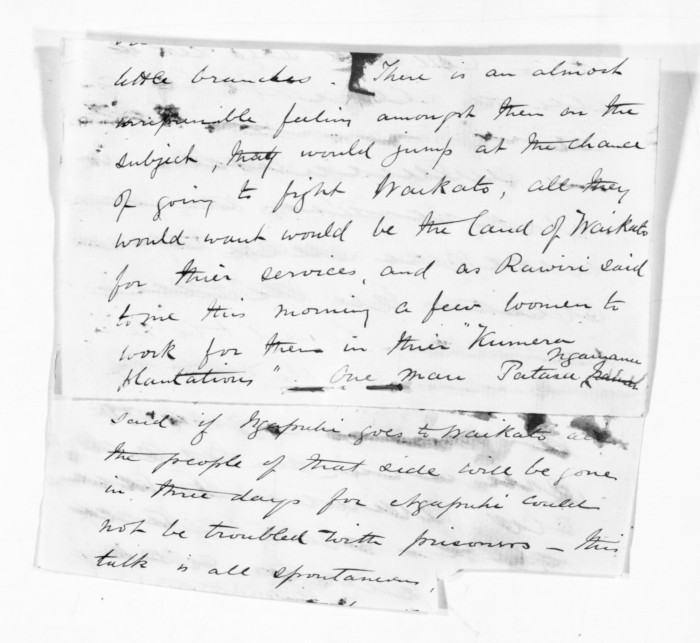 little branches. There is an almost
feeling amongst them on the
subject, they would jump at the chance
of going to fight Waikato, all they
would want would be the land of Waikato
for thier services, and as Rawiri said
to me this morning a few women to
work for them in thier "Kumera
plantations". One man Patara Ngamanu
said if Ngapuhi goes to Waikato all
the people of that side will be gone
in three days for Ngapuhi could
not be troubled with prisoners — this
talk is all spontaneous.